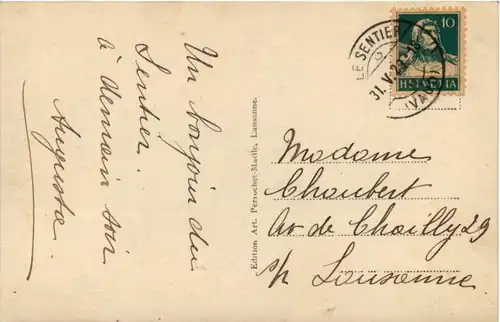 Un bonjour du
Sentier.
à demain soir
Augusta.
Edition Art. Perrochet-Matile, Lausanne.
10
HELVETIA
LE SENTIER
31.V.2
(VAUD)
Madame
Choubert
Av de Chailly 29
s/ Lausanne